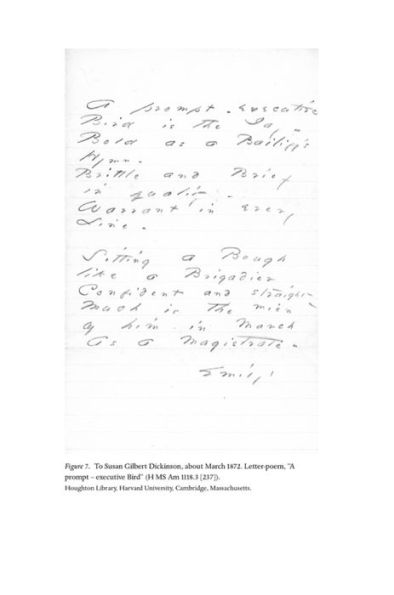 A prompt - executive
Bird is the Jay -
Bold as a Bailiff's
Hymn -
Brittle and Brief
in quality -
Warrant in every
line -
Sitting a Bough
like a Brigadier
Confident and straight -
Much is the mien
of him in March
As a Magistrate -
Emily -
Figure 7. To Susan Gilbert Dickinson, about March 1872. Letter-poem, "A
prompt – executive Bird" (H MS Am 1118.3 [237]).
Houghton Library, Harvard University, Cambridge, Massachusetts.